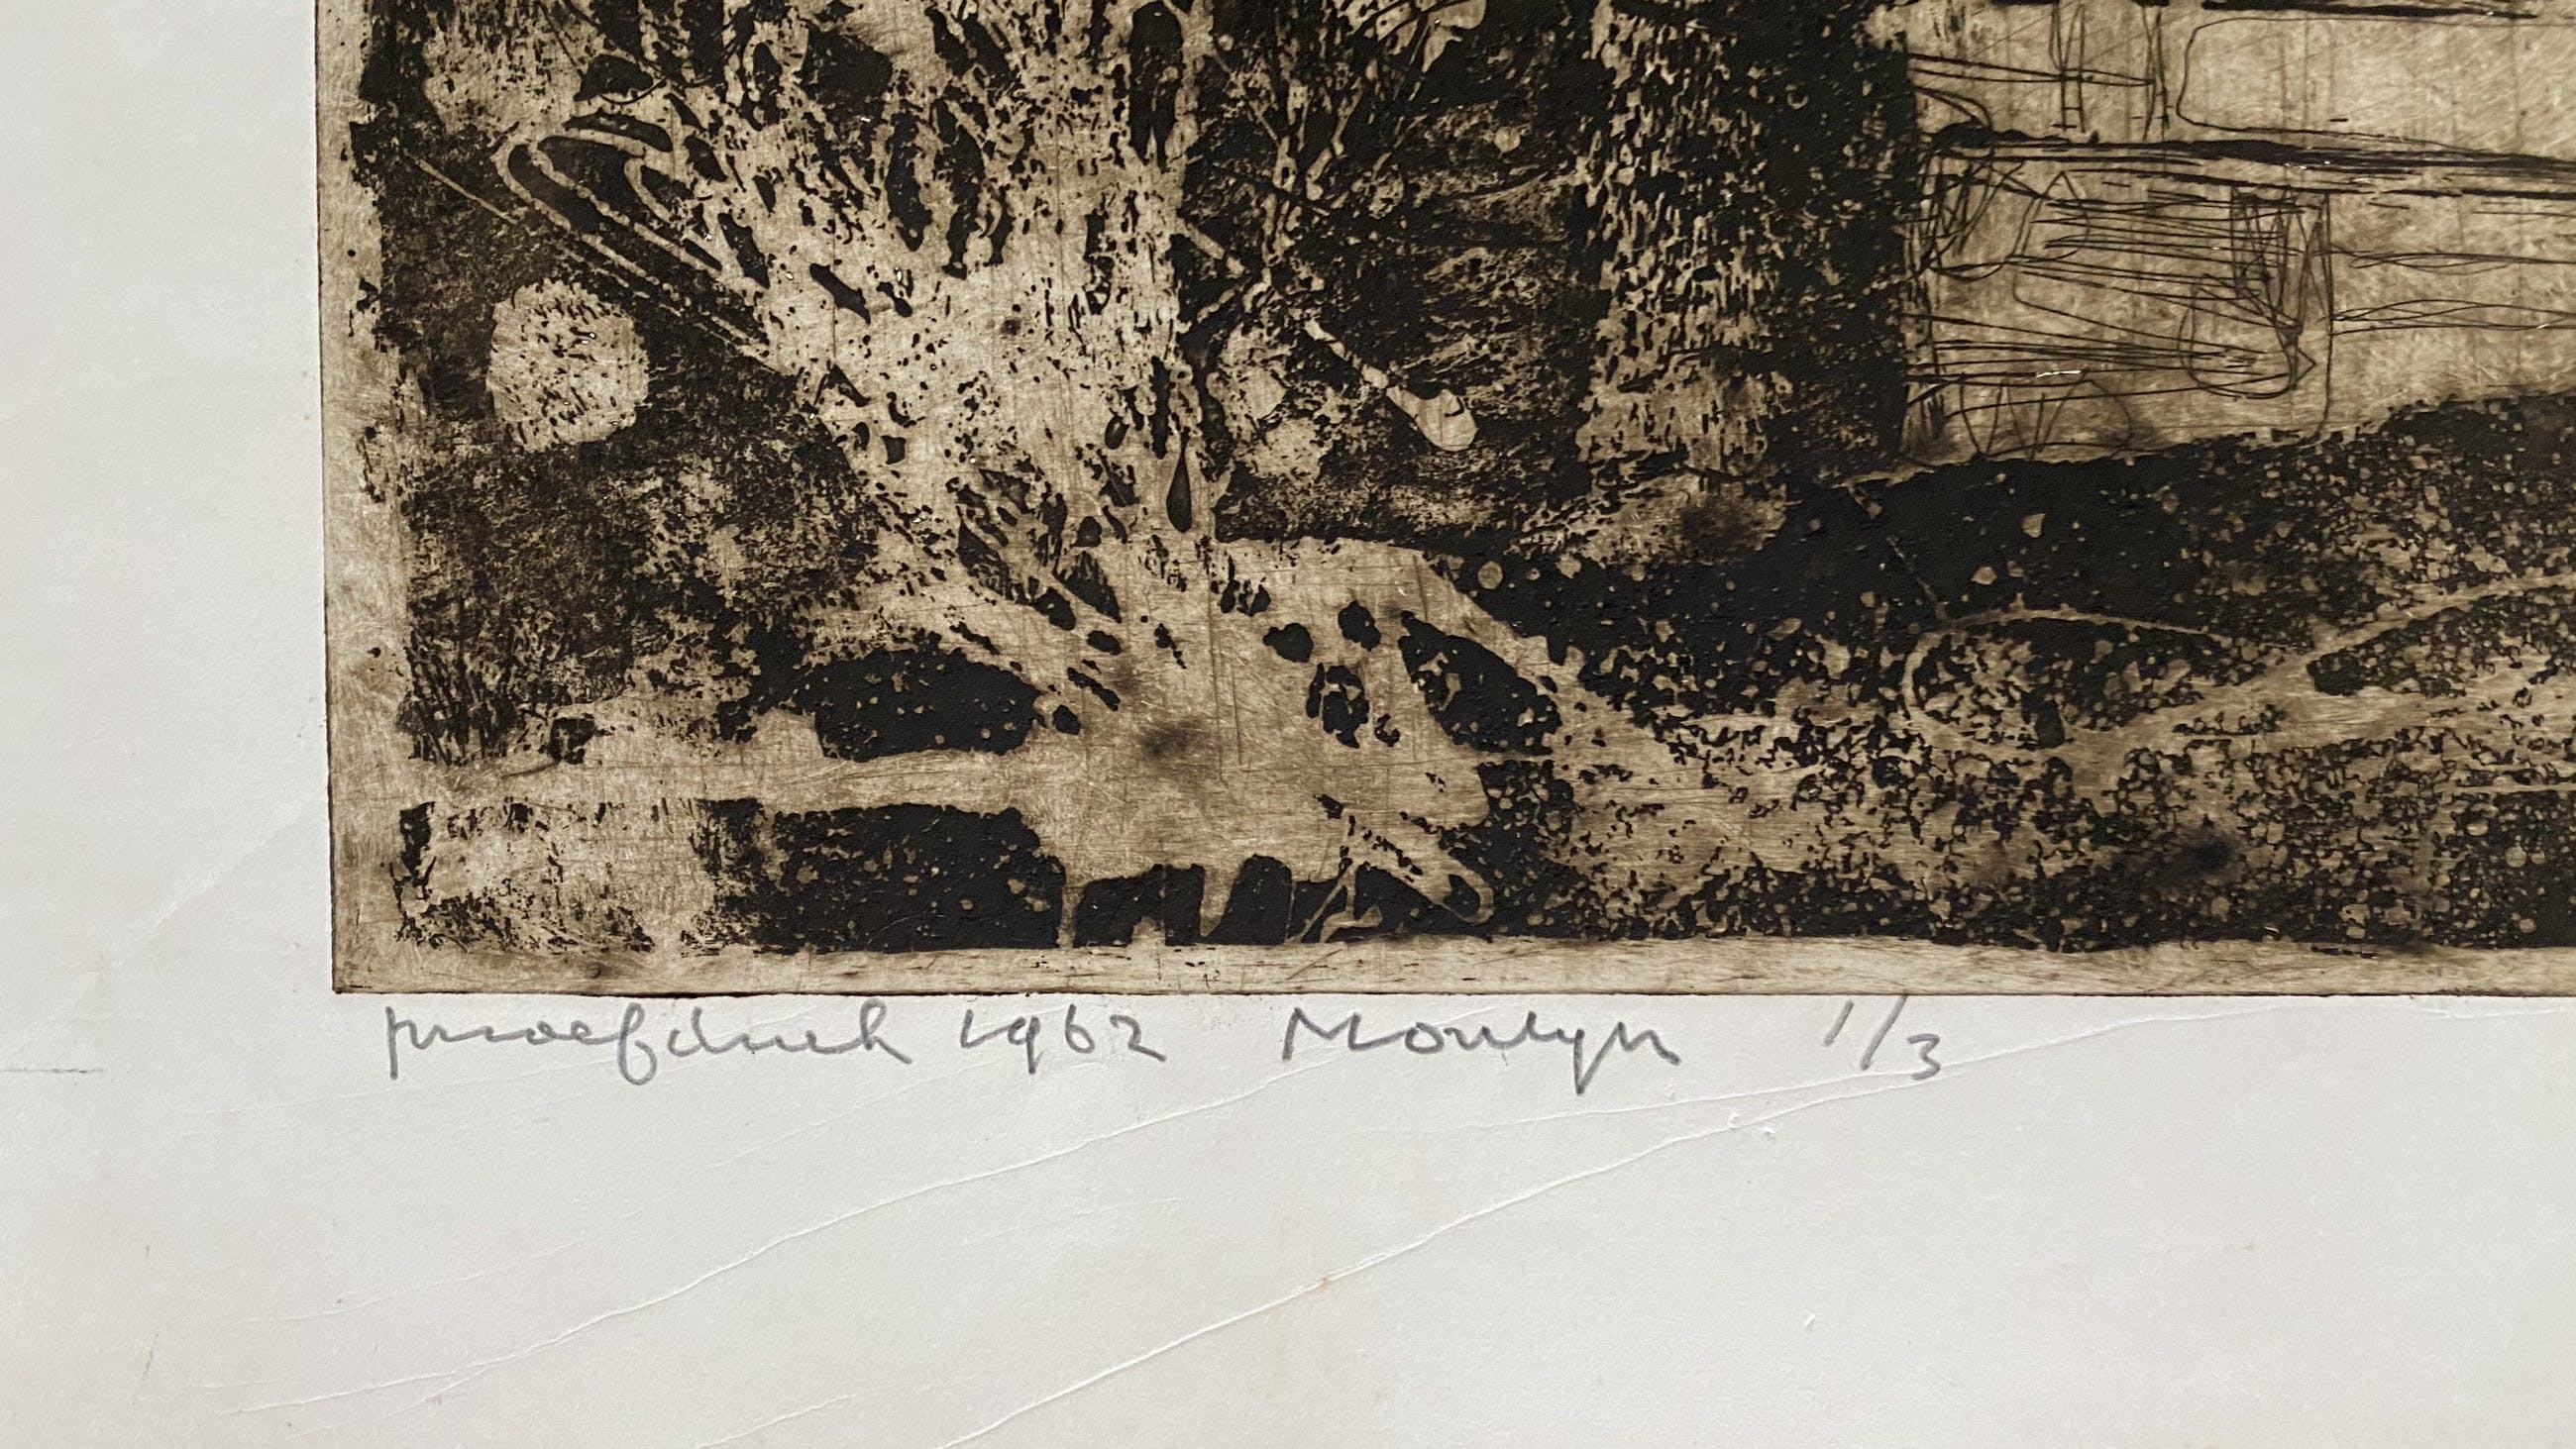 proefdruk 1962 Moulyn 1/3